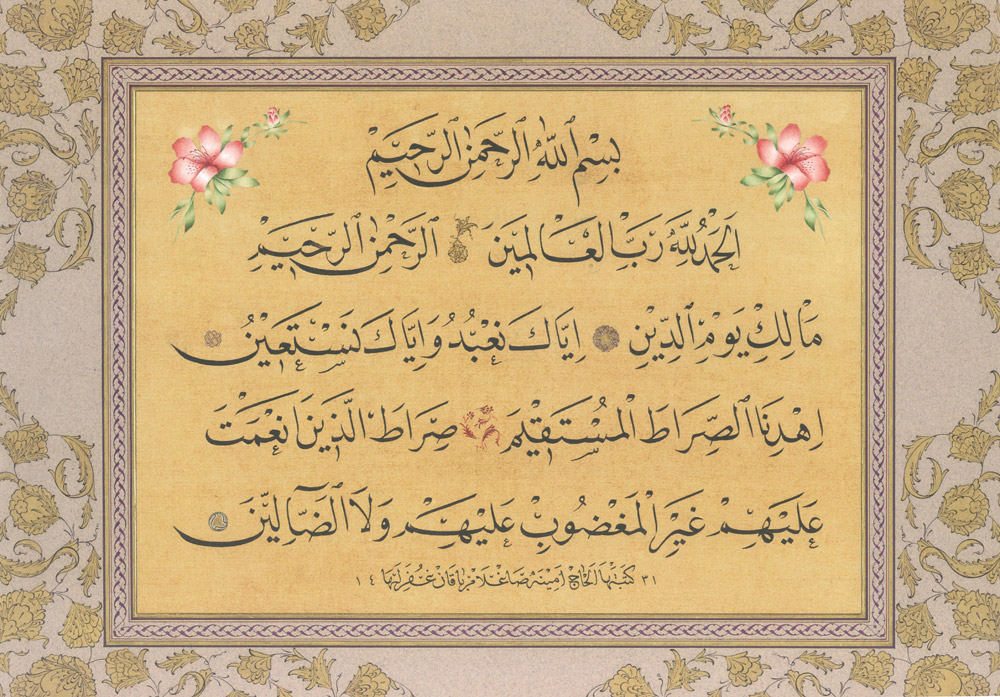 بِسْمِ ٱللّٰهِ ٱلرَّحْمٰنِ ٱلرَّحِيْمِ
اَلْحَمْدُ لِلّٰهِ رَبِّ الْعَالَمِيْنَ ٱلرَّحْمٰنِ ٱلرَّحِيْمِ
مَالِكِ يَوْمِ ٱلدِّيْنِ اِيَّاكَ نَعْبُدُ وَاِيَّاكَ نَسْتَعِيْنُ
اِهْدِنَا ٱلصِّرَاطَ الْمُسْتَقِيْمَ صِرَاطَ الَّذِيْنَ اَنْعَمْتَ
عَلَيْهِمْ غَيْرِ الْمَغْضُوْبِ عَلَيْهِمْ وَلَا ٱلضَّآلِّيْنَ
٣١ كتبتها الحاج امينه صاغلام ياقان غفر لها ١٤